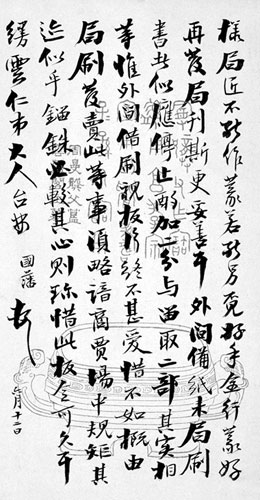 樣局匠不能作蒙若能另覓好手全行蒙好
再發局刊斷更妥善耳外間備紙來局刷
書者似應停止酌加一分與酉取二部其實相
等惟外間借刷視板片終不甚愛惜不如概由
局刷發賣此等事須略諳商賈場中規矩其
迹似乎錙銖必較其心則珍惜此板令可久耳
縵雲仁弟大人台安
國藩
正月十二日